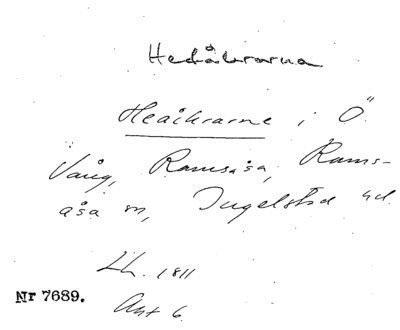 Hedåkrarna
Heåkrarne i Ö.
Vång, Ramsåsa, Rams-
åsa sn, Ingelstad hd.
Lh. 1811
Akt 6
Nr 7689.